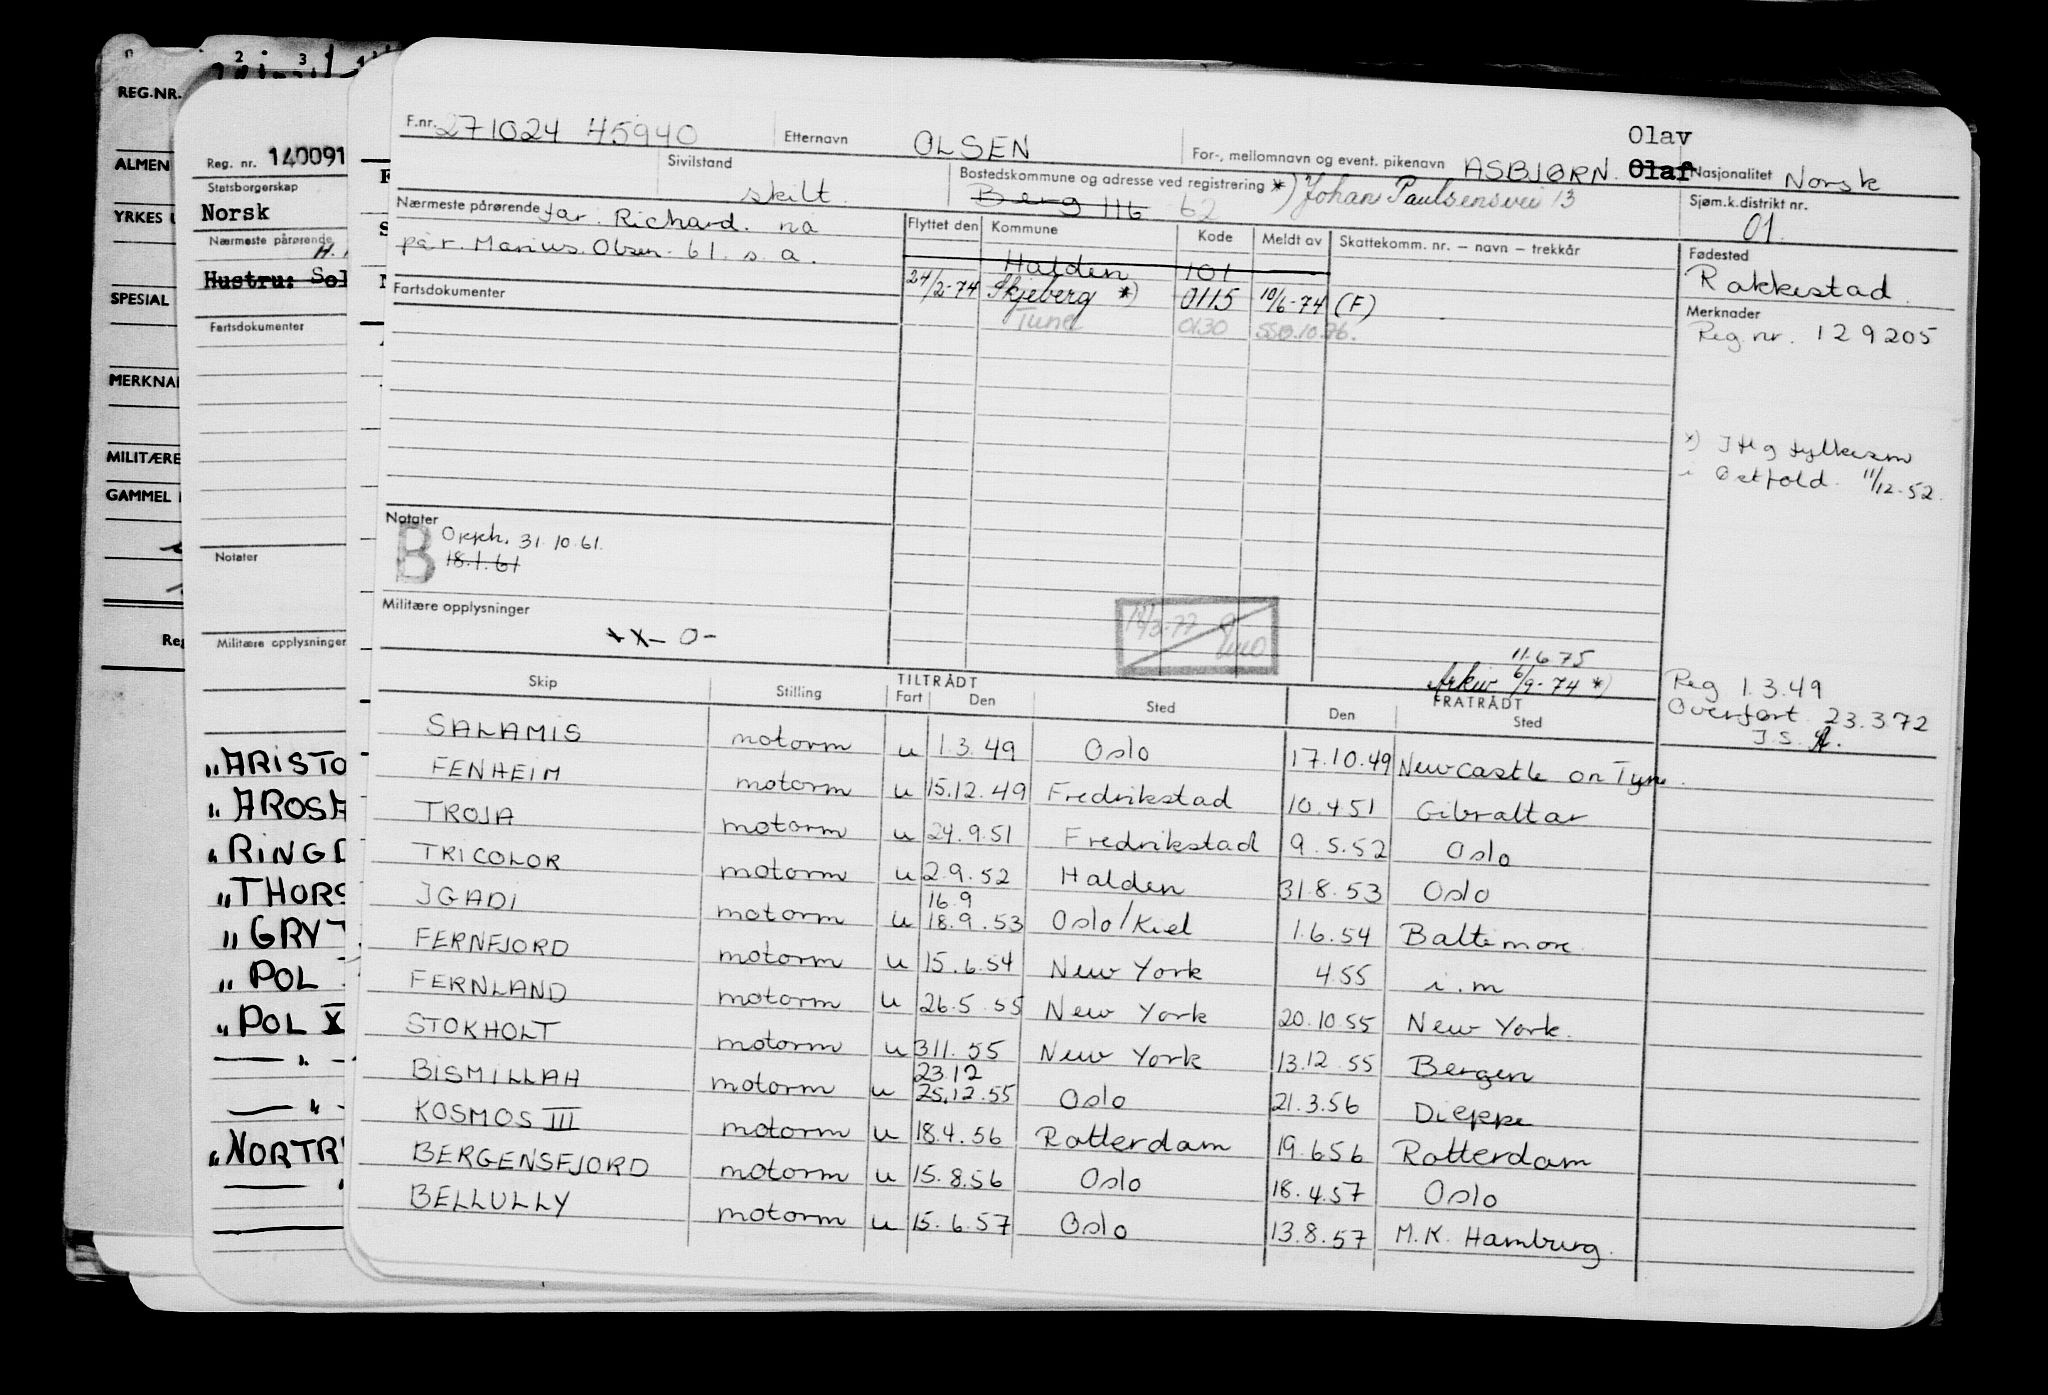 2 3
REG.NR.
ALMEN
YRKES
SPESIAL
MERKNA
MILITÆRE
GAMMEL
Reg
Reg. nr. 140091
Statsborgerskap
Norsk
Nærmeste pårørende
H.
Hustru: Sol
Fartsdokumenter
Notater
Militære opplysninger
"ARISTO
"AROSA
"RINGD
"THORS
"GRYT
"POL
"POL X
"NORTR
F.nr. 271024 45940 Etternavn OLSEN For-, mellomnavn og event. pikenavn ASBJØRN. Olaf Olav Nasjonalitet Norsk
Sivilstand skilt. Bostedskommune og adresse ved registrering *) Johan Paulsensvei 13
Berg 116 62
Sjøm.k.distrikt nr. 01
Nærmeste pårørende far. Richard. na
på r. Marius. Olsen. 61. s. a.
Flyttet den Kommune Kode Meldt av Skattekomm. nr. — navn — trekkår
Fødested
Rakkestad.
Halden 101
24/2-74 Skjeberg *) 0115 10/6-74 (F)
Tune 0130 SSB.10.76.
Fartsdokumenter
Merknader
Reg nr. 129205
*) Itlg fylkesm
i Østfold. 11/12.52.
Notater
B Opph. 31.10.61.
18.1.61
Militære opplysninger
XX- 0-
18/3-77
11.6.75
Arkiv 6/9-74 *)
Reg 1.3.49
Overført 23.3.72
I.S.
Skip Stilling TILTRÅDT Fart Den Sted FRATRÅDT Den Sted
SALAMIS motorm u 1.3.49 Oslo 17.10.49 Newcastle on Tyne.
FENHEIM motorm u 15.12.49 Fredrikstad 10.4.51 Gibraltar
TROJA motorm u 24.9.51 Fredrikstad 9.5.52 Oslo
TRICOLOR motorm u 2.9.52 Halden 31.8.53 Oslo
IGADI motorm u 16.9 18.9.53 Oslo/Kiel 1.6.54 Baltimore
FERNFJORD motorm u 15.6.54 New York 4.55 i.m
FERNLAND motorm u 26.5.55 New York 20.10.55 New York.
STOKHOLT motorm u 3.11.55 New York 13.12.55 Bergen
BISMILLAH motorm u 23.12 25.12.55 Oslo 21.3.56 Dieppe
KOSMOS III motorm u 18.4.56 Rotterdam 19.6.56 Rotterdam
BERGENSFJORD motorm u 15.8.56 Oslo 18.4.57 Oslo
BELLULLY motorm u 15.6.57 Oslo 13.8.57 M.K. Hamburg.